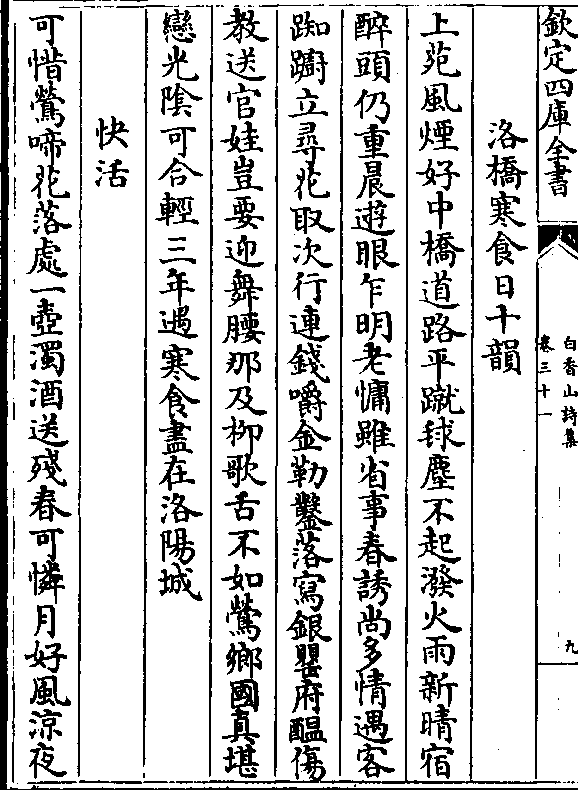 欽定四庫全書
白香山詩集
卷三十一
九
洛橋寒食日十韻
上苑風煙好中橋道路平蹴球塵不起潑火雨新晴宿
醉頭仍重晨遊眼乍明老慵雖省事春誘尚多情遇客
踟躕立尋花取次行連錢嚼金勒鑿落寫銀罌府醞傷
教送官娃豈要迎舞腰那及柳歌舌不如鶯鄉國真堪
戀光陰可合輕三年遇寒食盡在洛陽城
快活
可惜鶯啼花落處一壺濁酒送殘春可憐月好風涼夜